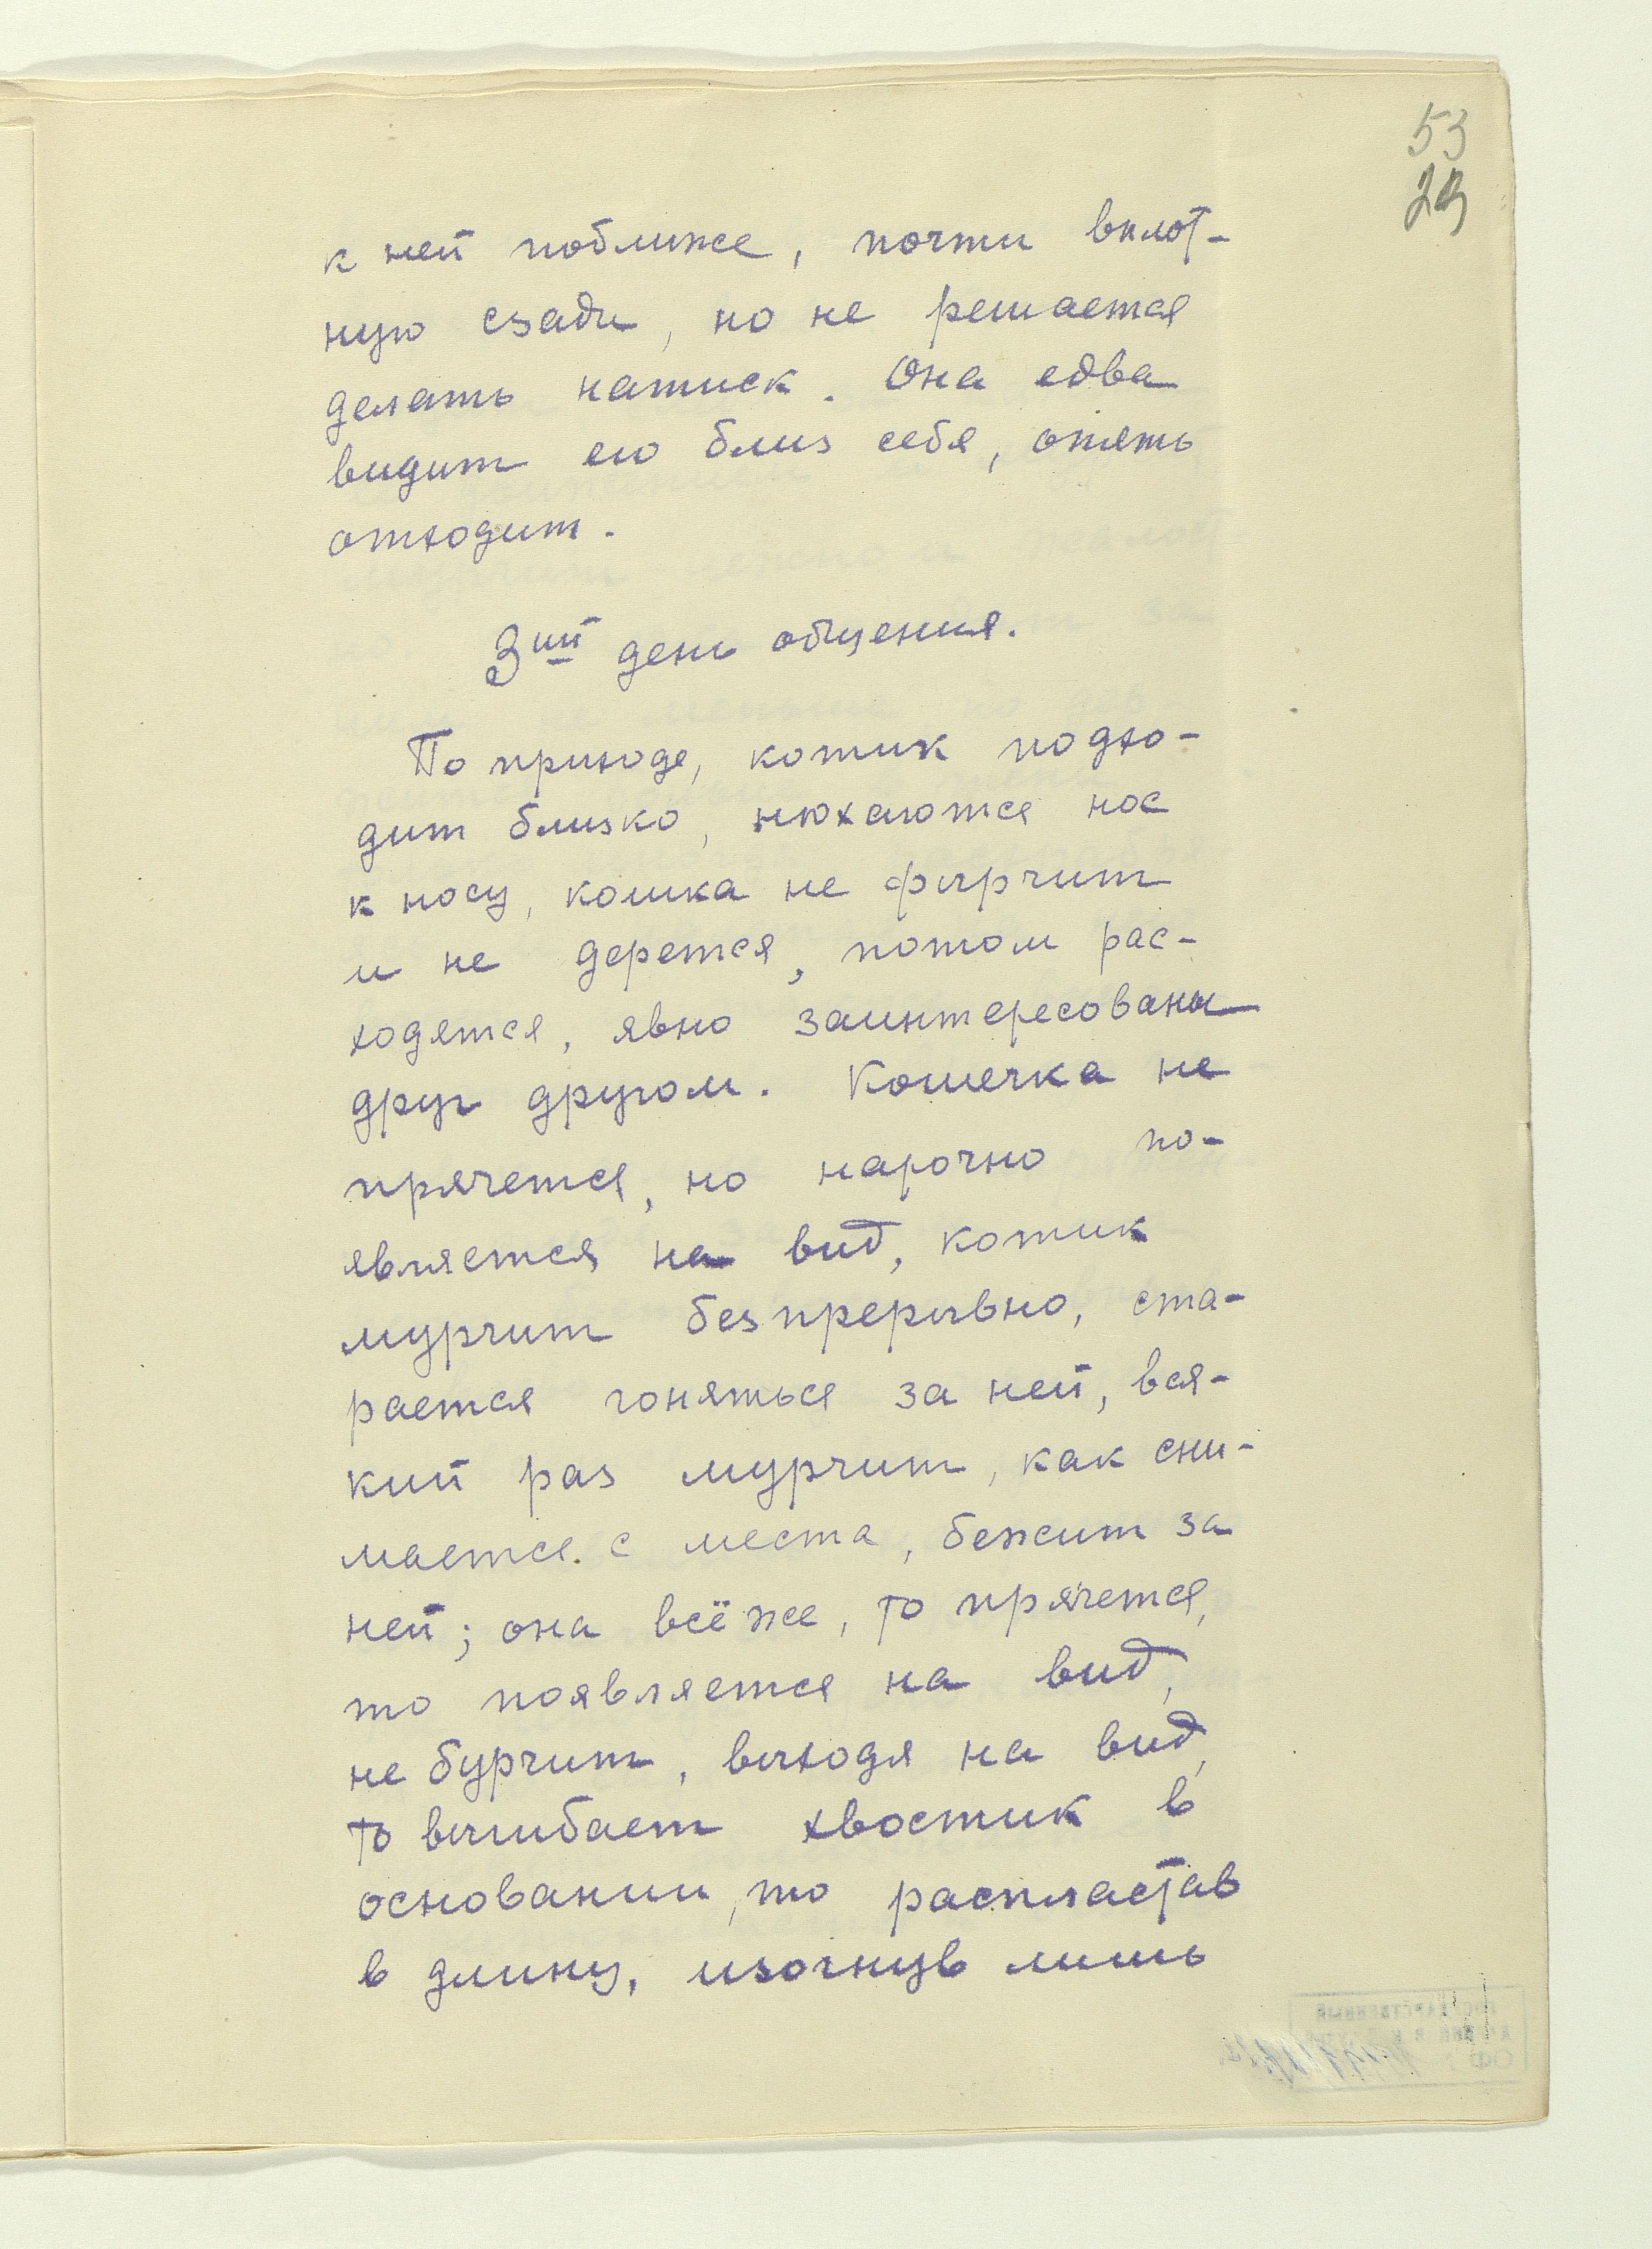 53
29
к ней поближе, почти вплот-
ную сзади, но не решается
делать натиск. Она едва
видит его близ себя, опять
отходит.
3ий день общения.
По приходе, котик подхо-
дит близко, нюхаются нос
к носу, кошка не фырчит
и не дерется, потом рас-
ходятся, явно заинтересованы
друг другом. Кошечка не
прячется, но нарочно по-
является на вид, котик
мурчит безпрерывно, ста-
рается гоняться за ней, вся-
кий раз мурчит, как сни-
мается с места, бежит за
ней; она всё же, то прячется,
то появляется на вид,
не бурчит, выходя на вид,
то выгибает хвостик в
основании, то распластав
в длину, изогнув лишь